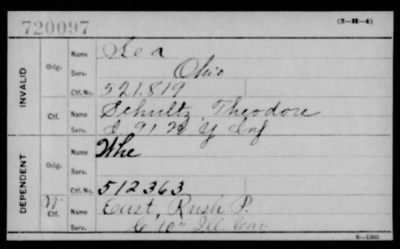 720097 (3-H-4)
INVALID
Orig.
Name Lea
Serv. Ohio
Ctf. No. 521.819
Ctf.
Name Schultz, Theodore
Serv. I 91 N Y Inf
DEPENDENT
Orig.
Name
Serv.
Ctf. No. 512363
W Ctf.
Name East, Rush P.
Serv. C 10" Ill. Cav.